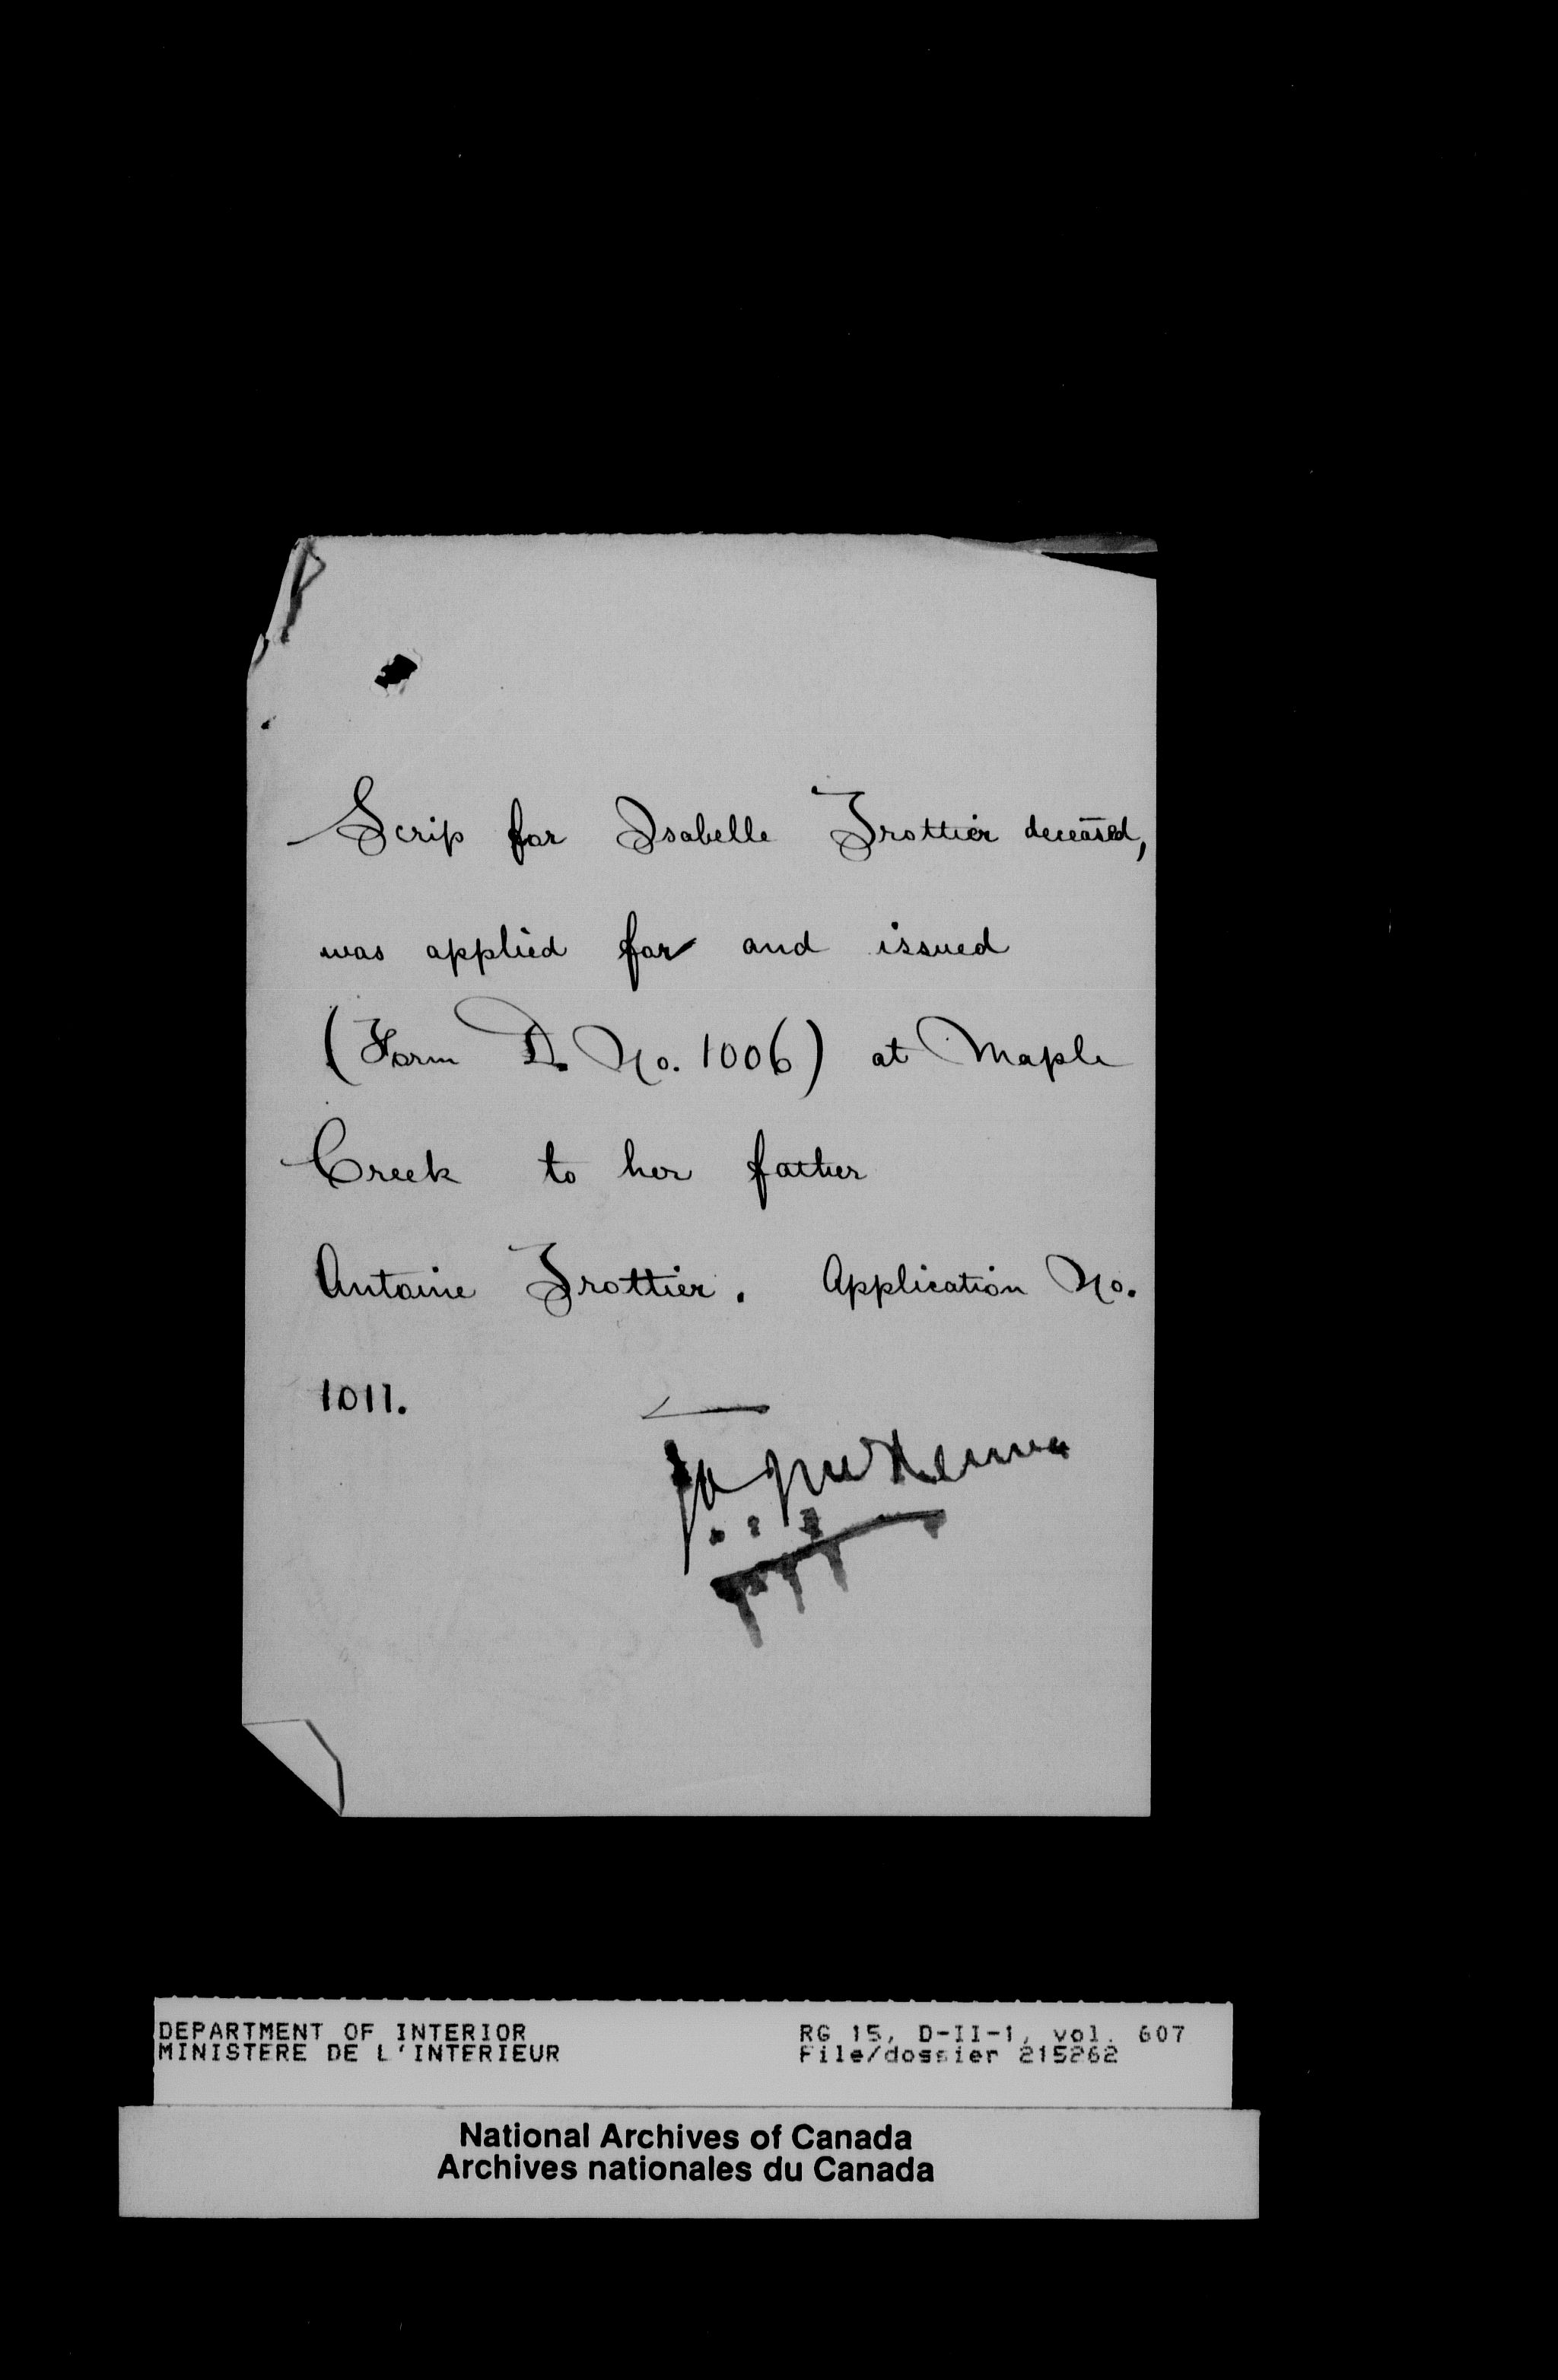 Scrip for Isabelle Trottier deceased,
was applied for and issued
(Form D. No. 1006) at Maple
Creek to her father
Antoine Trottier. Application No.
1011.
DEPARTMENT OF INTERIOR
MINISTERE DE L'INTERIEUR
RG 15, D-II-1, vol. 607
File/dossier 215262
National Archives of Canada
Archives nationales du Canada